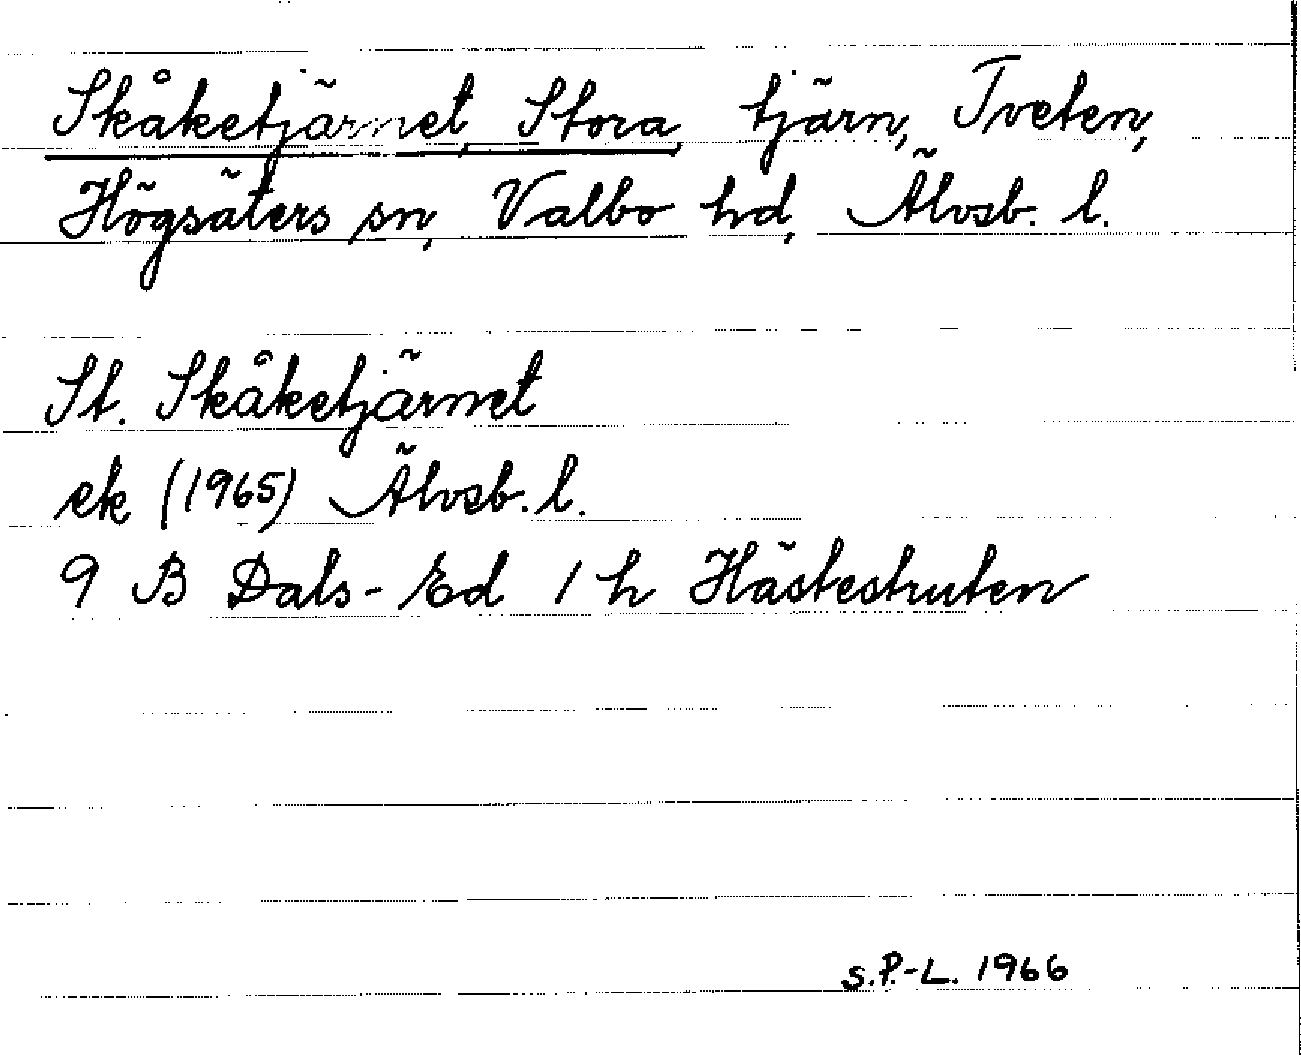 Skåketjärnet, Stora, tjärn, Tveten,
Högsäters sn, Valbo hd, Älvsb. l.
St. Skåketjärnet
ek (1965) Älvsb. l.
9 B Dals-Ed 1 h Hästestruten
S.P.-L. 1966